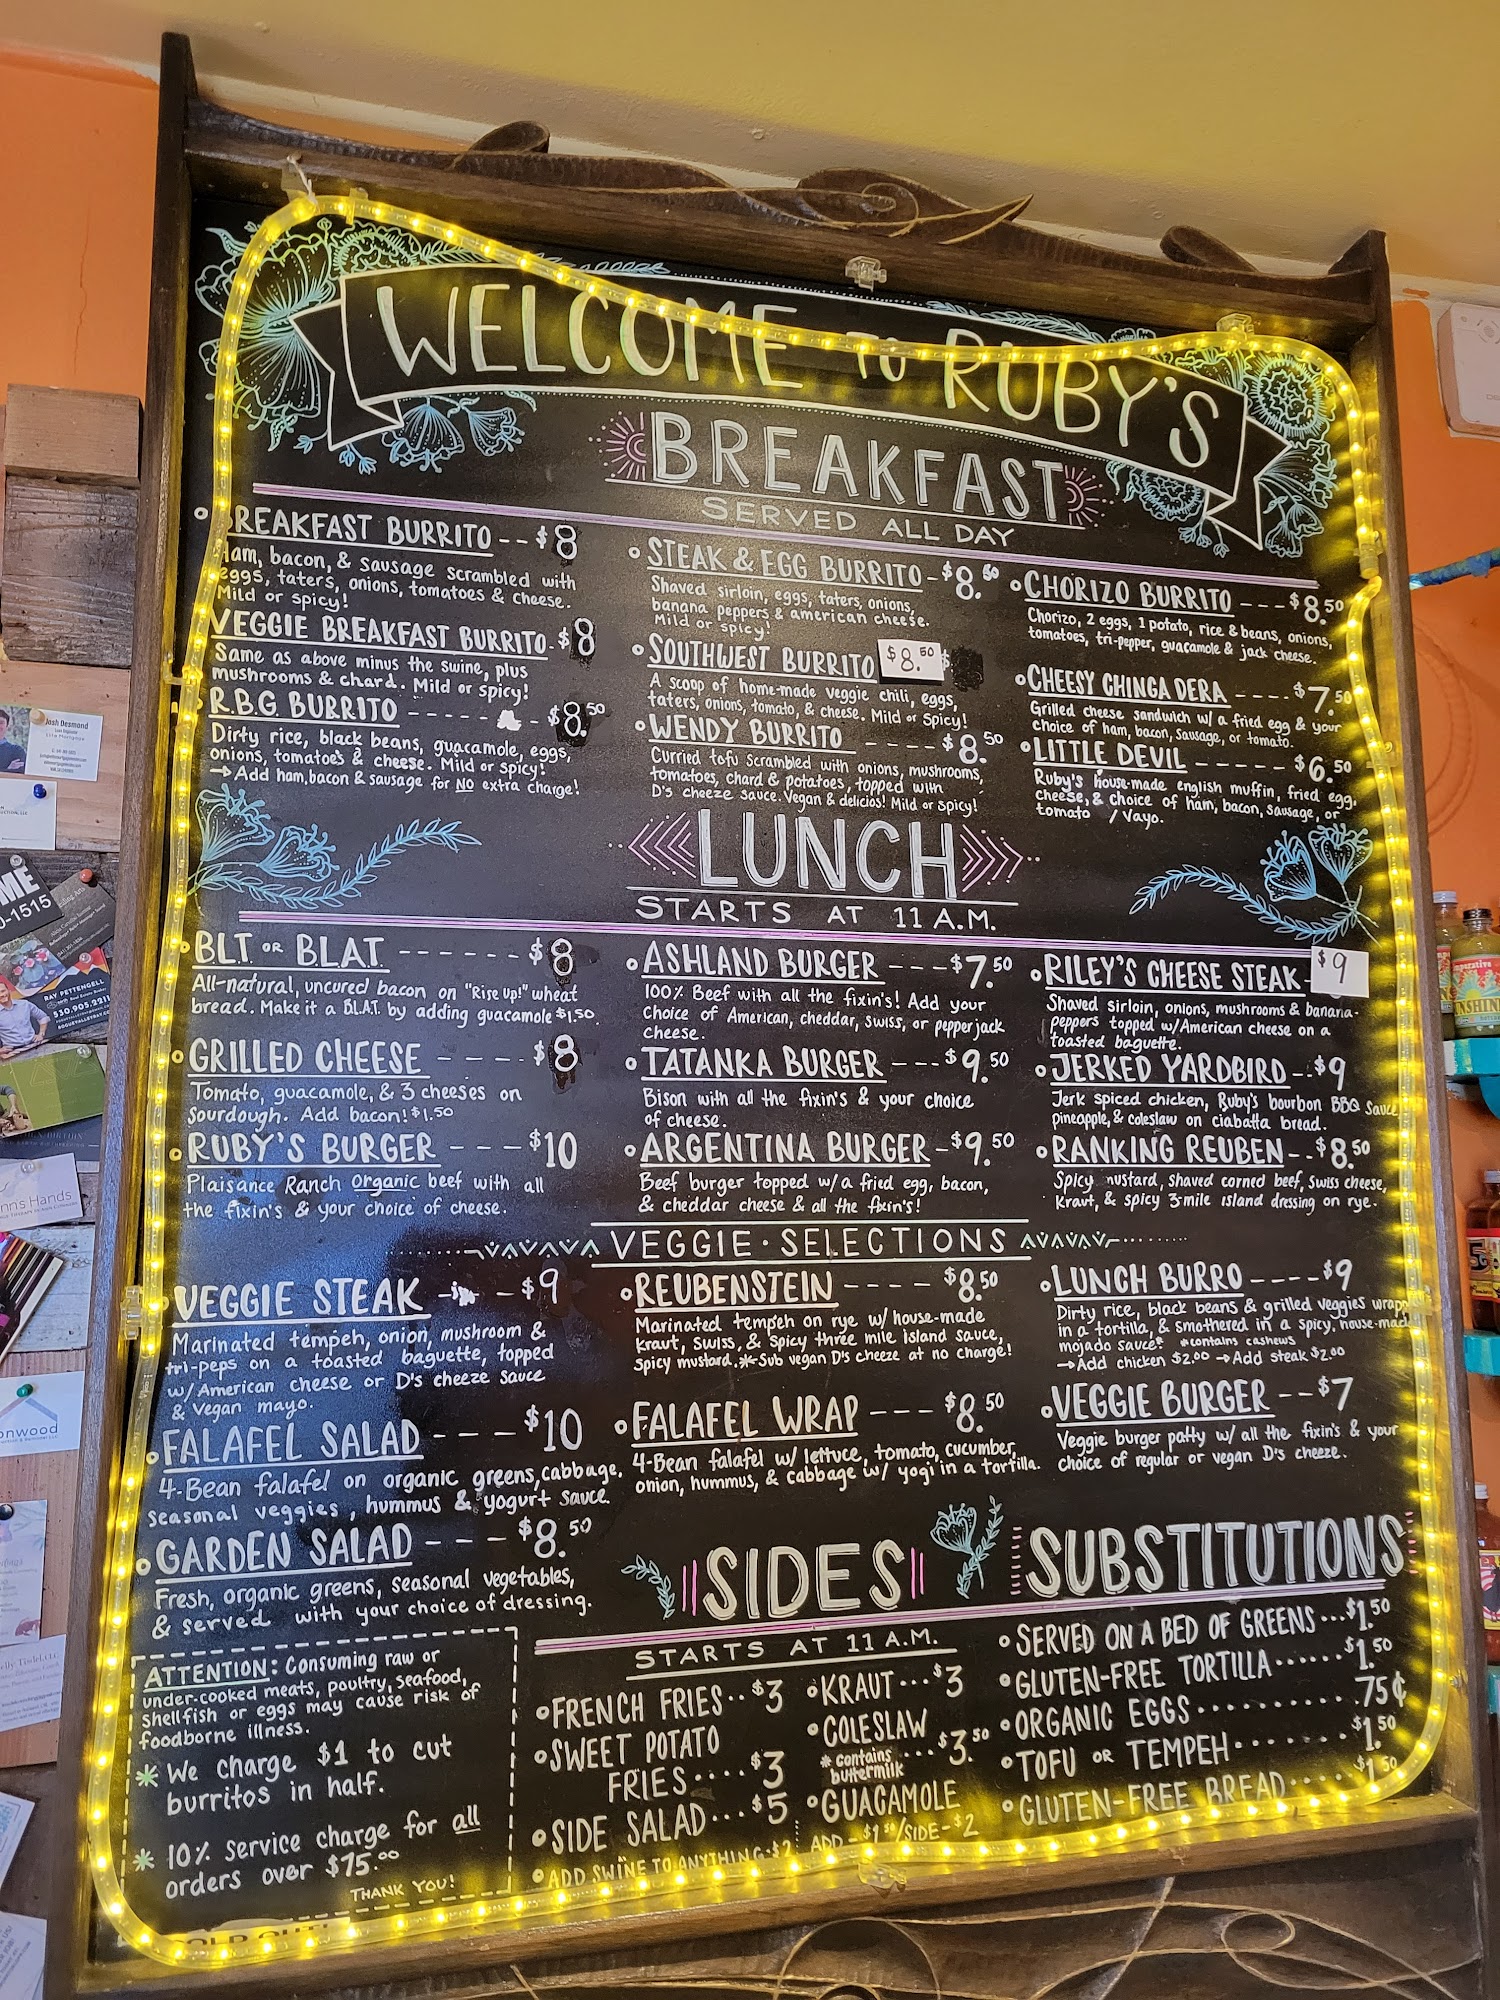 WELCOME TO RUBY'S
BREAKFAST
SERVED ALL DAY
BREAKFAST BURRITO -- $8
Ham, bacon, & sausage scrambled with
eggs, taters, onions, tomatoes & cheese.
Mild or spicy!
VEGGIE BREAKFAST BURRITO - $8
Same as above minus the swine, plus
mushrooms & chard. Mild or spicy!
R.B.G. BURRITO ----- - $8.50
Dirty rice, black beans, guacamole, eggs,
onions, tomatoes & cheese. Mild or spicy!
→Add ham, bacon & sausage for NO extra charge!
STEAK & EGG BURRITO - $8.50
Shaved sirloin, eggs, taters, onions,
banana peppers & american cheese.
Mild or spicy!
SOUTHWEST BURRITO $8.50
A scoop of home-made veggie chili, eggs,
taters, onions, tomato, & cheese. Mild or Spicy!
WENDY BURRITO ---- $8.50
Curried tofu scrambled with onions, mushrooms,
tomatoes, chard & potatoes, topped with
D's cheeze sauce. Vegan & delicios! Mild or spicy!
CHORIZO BURRITO --- $8.50
Chorizo, 2 eggs, 1 potato, rice & beans, onions,
tomatoes, tri-pepper, guacamole & jack cheese.
CHEESY CHINGADERA ---- $7.50
Grilled cheese sandwich w/ a fried egg & your
choice of ham, bacon, sausage, or tomato.
LITTLE DEVIL ----- $6.50
Ruby's house-made english muffin, fried egg,
cheese, & choice of ham, bacon, sausage, or
tomato / Vayo.
LUNCH
STARTS AT 11 A.M.
BLT OR BLAT ------ $8
All-natural, uncured bacon on "Rise Up!" wheat
bread. Make it a B.L.A.T. by adding guacamole $1.50.
GRILLED CHEESE ---- $8
Tomato, guacamole, & 3 cheeses on
Sourdough. Add bacon! $1.50
RUBY'S BURGER --- $10
Plaisance Ranch organic beef with all
the fixin's & your choice of cheese.
ASHLAND BURGER --- $7.50
100% Beef with all the fixin's! Add your
choice of American, cheddar, swiss, or pepperjack
cheese.
TATANKA BURGER --- $9.50
Bison with all the fixin's & your choice
of cheese.
ARGENTINA BURGER - $9.50
Beef burger topped w/a fried egg, bacon,
& cheddar cheese & all the fixin's!
RILEY'S CHEESE STEAK - $9
Shaved sirloin, onions, mushrooms & banana-
peppers topped w/American cheese on a
toasted baguette.
JERKED YARDBIRD -- $9
Jerk spiced chicken, Ruby's bourbon BBQ sauce
pineapple, & coleslaw on ciabatta bread.
RANKING REUBEN -- $8.50
Spicy mustard, shaved corned beef, swiss cheese,
kraut, & spicy 3-mile island dressing on rye.
VEGGIE · SELECTIONS
VEGGIE STEAK - - $9
Marinated tempeh, onion, mushroom &
tri-peps on a toasted baguette, topped
w/American cheese or D's cheeze sauce
& vegan mayo.
FALAFEL SALAD --- $10
4-Bean falafel on organic greens, cabbage,
seasonal veggies, hummus & yogurt sauce.
GARDEN SALAD --- $8.50
Fresh, organic greens, seasonal vegetables,
& served with your choice of dressing.
REUBENSTEIN ---- $8.50
Marinated tempeh on rye w/ house-made
kraut, swiss, & spicy three mile island sauce,
spicy mustard. *Sub vegan D's cheeze at no charge!
FALAFEL WRAP --- $8.50
4-Bean falafel w/ lettuce, tomato, cucumber,
onion, hummus, & cabbage w/ yogi in a tortilla.
LUNCH BURRO ---- $9
Dirty rice, black beans & grilled veggies wrapped
in a tortilla, & smothered in a spicy, house-made
mojado sauce!* *contains cashews
→Add chicken $2.00 →Add steak $2.00
VEGGIE BURGER -- $7
Veggie burger patty w/ all the fixin's & your
choice of regular or vegan D's cheeze.
ATTENTION: Consuming raw or
under-cooked meats, poultry, seafood,
shellfish or eggs may cause risk of
foodborne illness.
* We charge $1 to cut
burritos in half.
* 10% service charge for all
orders over $75.00
THANK YOU!
SIDES
STARTS AT 11 A.M.
FRENCH FRIES .. $3
SWEET POTATO
FRIES .... $3
SIDE SALAD ... $5
ADD SWINE TO ANYTHING - $2
KRAUT ... $3
COLESLAW
* contains
buttermilk ... $3.50
GUACAMOLE
ADD - $1.50/SIDE - $2
SUBSTITUTIONS
SERVED ON A BED OF GREENS ... $1.50
GLUTEN-FREE TORTILLA ...... $1.50
ORGANIC EGGS ........... .75¢
TOFU OR TEMPEH ....... $1.50
GLUTEN-FREE BREAD .... $1.50
Josh Desmond
RAY PETTENGELL
530.905.2211